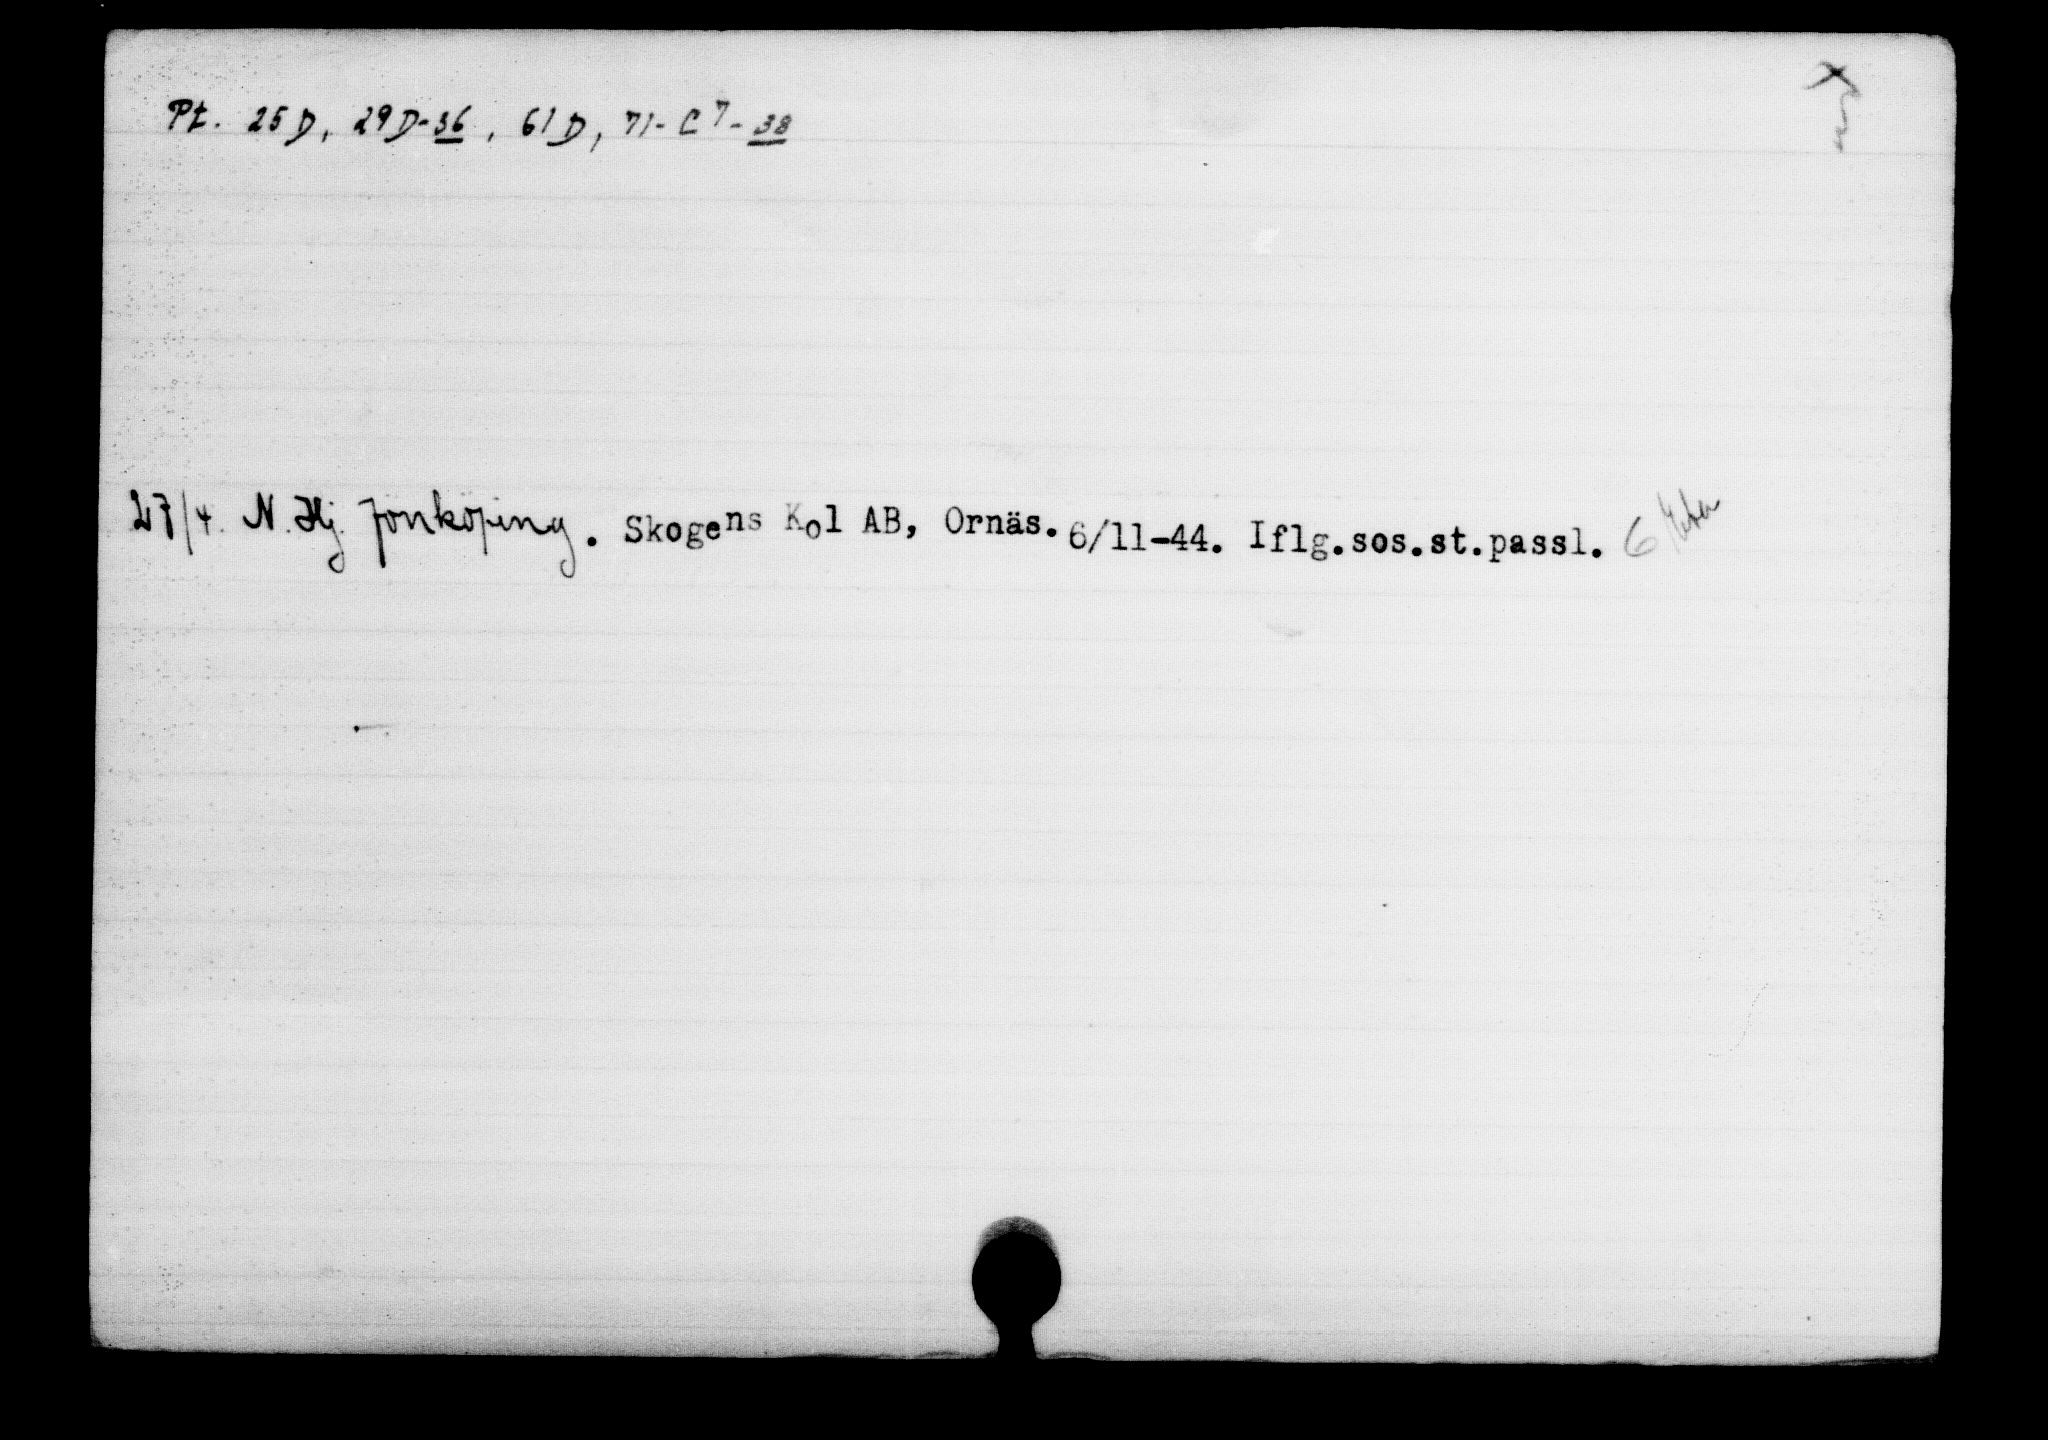 Pt. 25D, 29D-36, 61D, 71-C7-38
27/4. N. Hj. Jönköping. Skogens Kol AB, Ornäs. 6/11-44. Iflg.sos.st.passl. 6